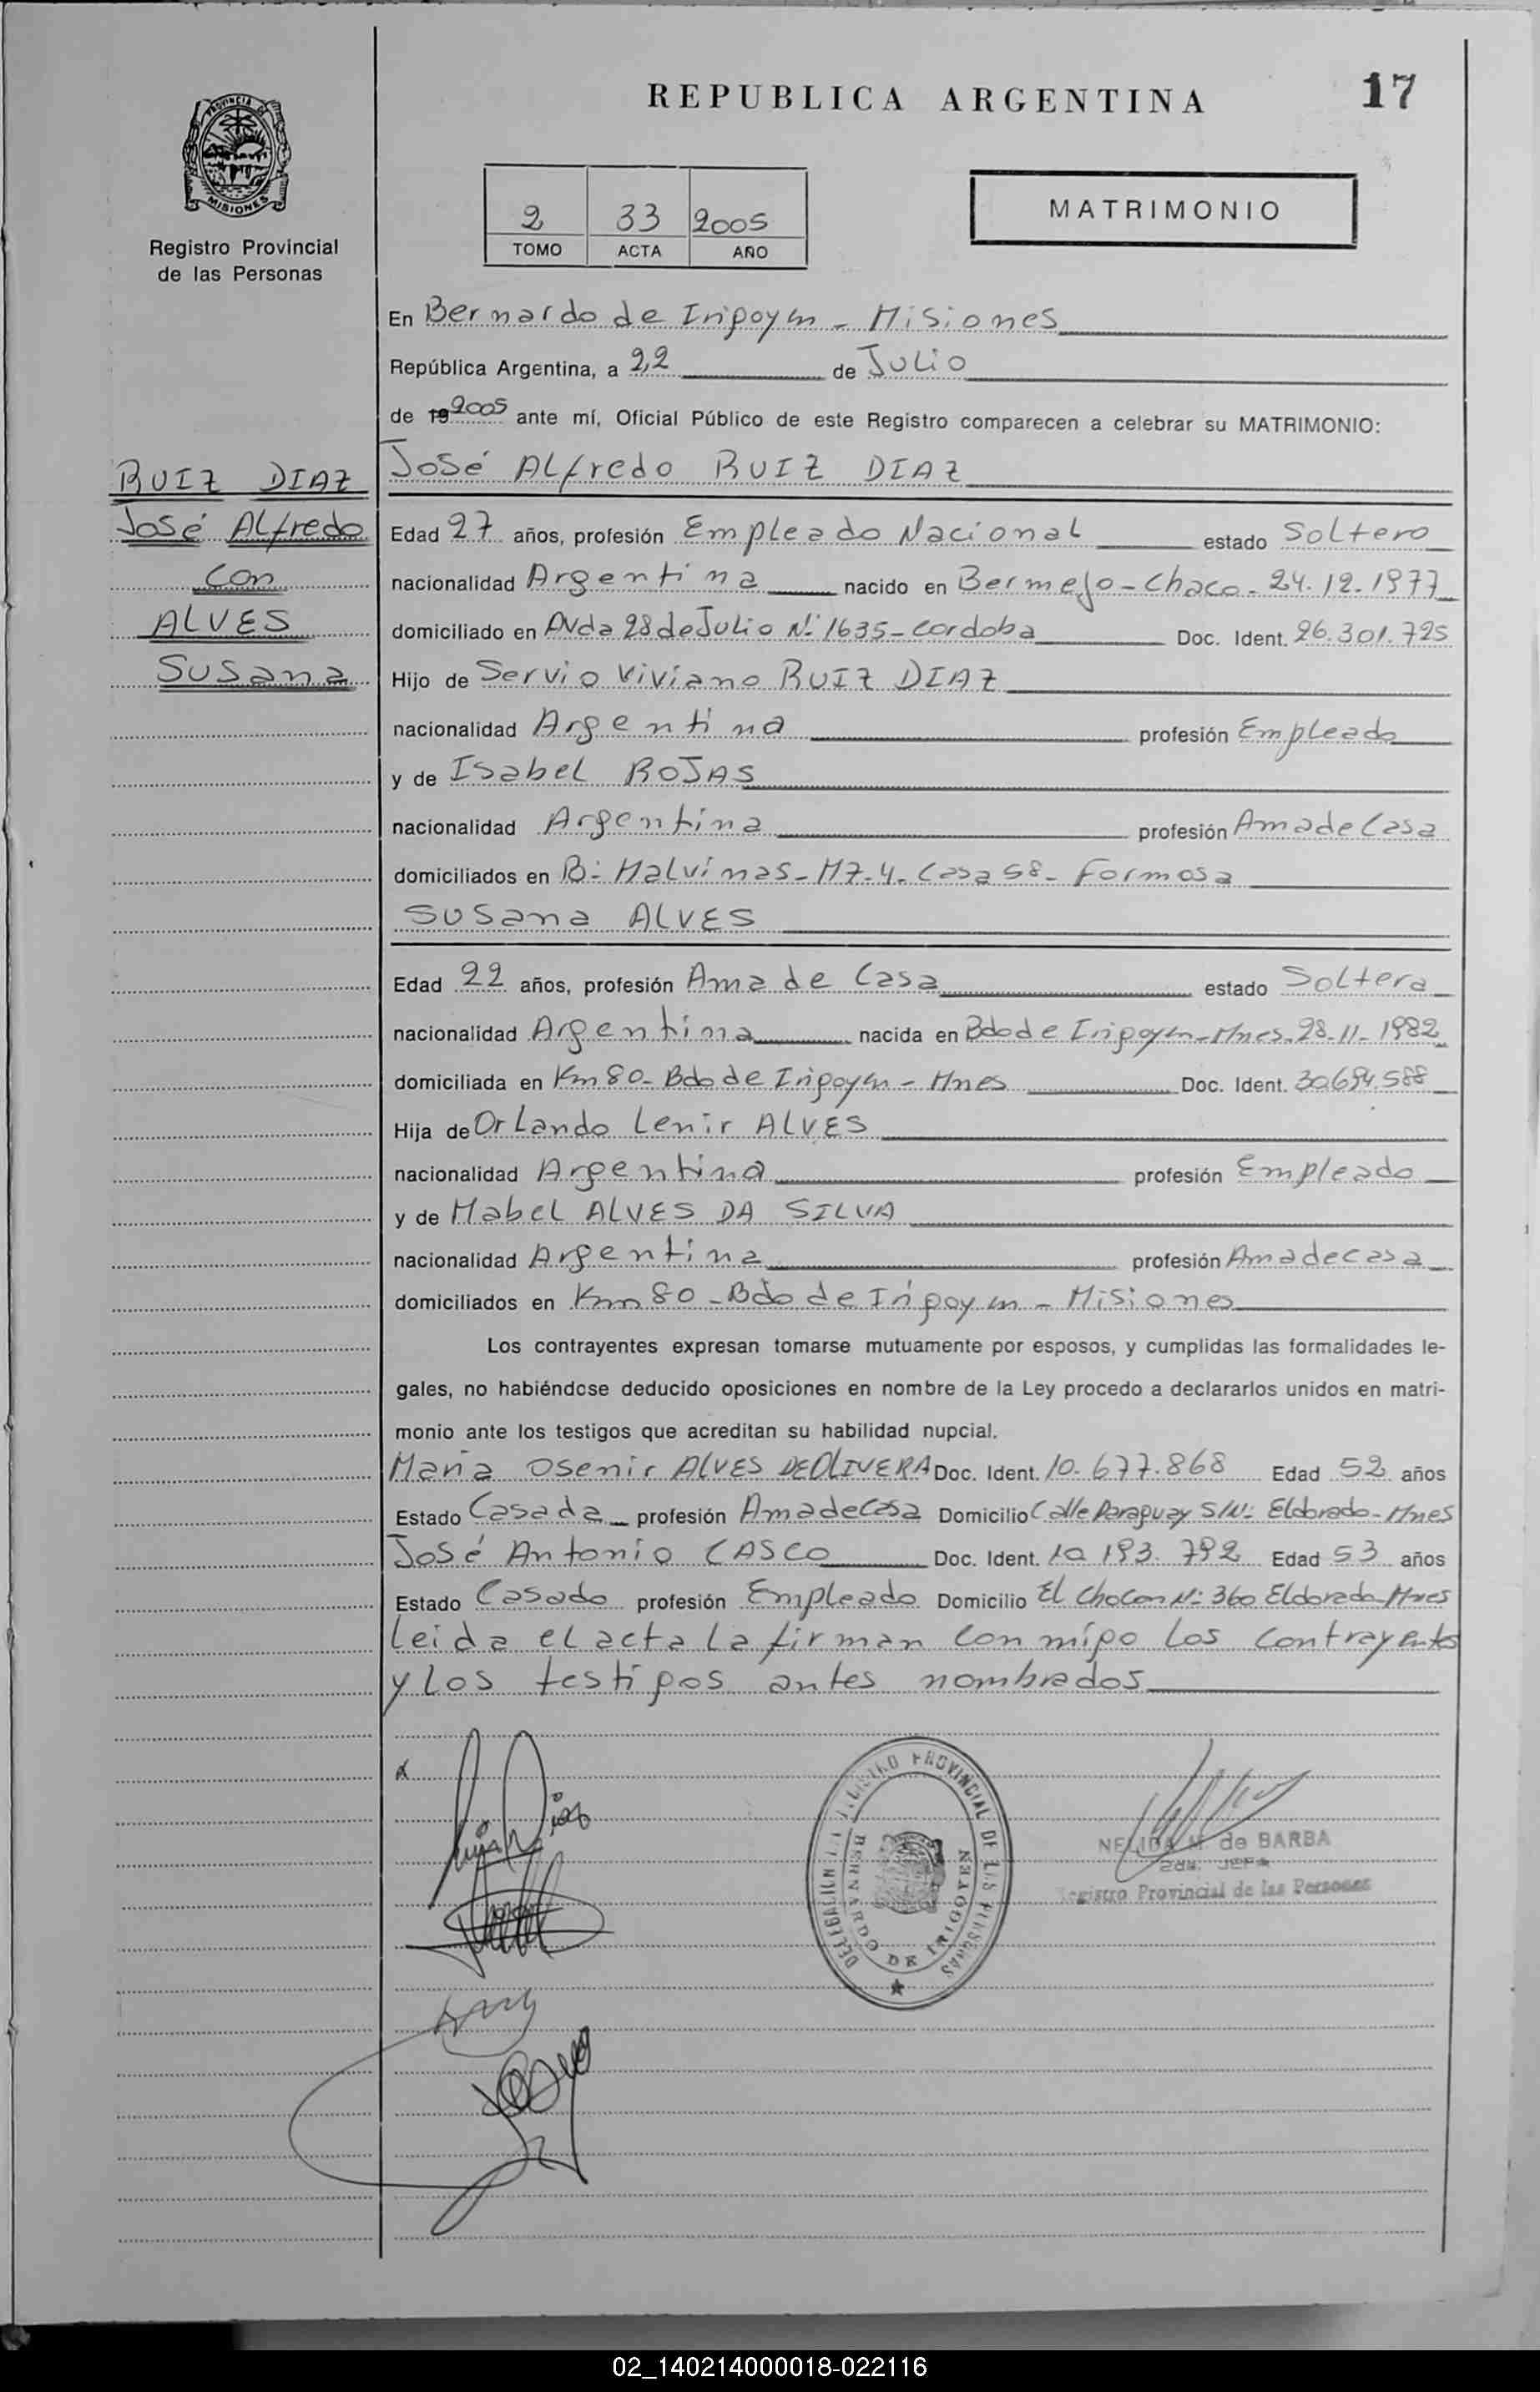 REPUBLICA ARGENTINA
17
PROVINCIA DE
MISIONES
Registro Provincial
de las Personas
2 33 2005
TOMO ACTA AÑO
MATRIMONIO
En Bernardo de Irigoyen - Misiones
República Argentina, a 22 de Julio
de 19 2005 ante mí, Oficial Público de este Registro comparecen a celebrar su MATRIMONIO:
José Alfredo RUIZ DIAZ
RUIZ DIAZ
José Alfredo
Con
ALVES
Susana
Edad 27 años, profesión Empleado Nacional estado Soltero
nacionalidad Argentina nacido en Bermejo - Chaco - 24.12.1977
domiciliado en Avda 28 de Julio Nº 1635 - Cordoba Doc. Ident. 26.301.725
Hijo de Servio Viviano RUIZ DIAZ
nacionalidad Argentina profesión Empleado
y de Isabel ROJAS
nacionalidad Argentina profesión Ama de Casa
domiciliados en Bº Malvinas - Mz. 4 - Casa 58 - Formosa
Susana ALVES
Edad 22 años, profesión Ama de Casa estado Soltera
nacionalidad Argentina nacida en Bdo de Irigoyen - Mnes. 28-11-1982
domiciliada en Km 80 - Bdo de Irigoyen - Mnes Doc. Ident. 30.694.588
Hija de Orlando Lenir ALVES
nacionalidad Argentina profesión Empleado
y de Mabel ALVES DA SILVA
nacionalidad Argentina profesión Ama de casa
domiciliados en Km 80 - Bdo de Irigoyen - Misiones
Los contrayentes expresan tomarse mutuamente por esposos, y cumplidas las formalidades le-
gales, no habiéndose deducido oposiciones en nombre de la Ley procedo a declararlos unidos en matri-
monio ante los testigos que acreditan su habilidad nupcial.
Maria Osenir ALVES DE OLIVERA Doc. Ident. 10.677.868 Edad 52 años
Estado Casada profesión Ama de Casa Domicilio Calle Paraguay S/Nº Eldorado - Mnes
José Antonio CASCO Doc. Ident. 10.193.792 Edad 53 años
Estado Casado profesión Empleado Domicilio El Chocon Nº 360 Eldorado - Mnes
Leida el acta la firman conmigo los contrayentes
y los testigos antes nombrados
REGISTRO PROVINCIAL DE LAS PERSONAS
DELEGACION
BERNARDO DE IRIGOYEN
NELIDA M de BARBA
2da. JEFA
Registro Provincial de las Personas
02_140214000018-022116